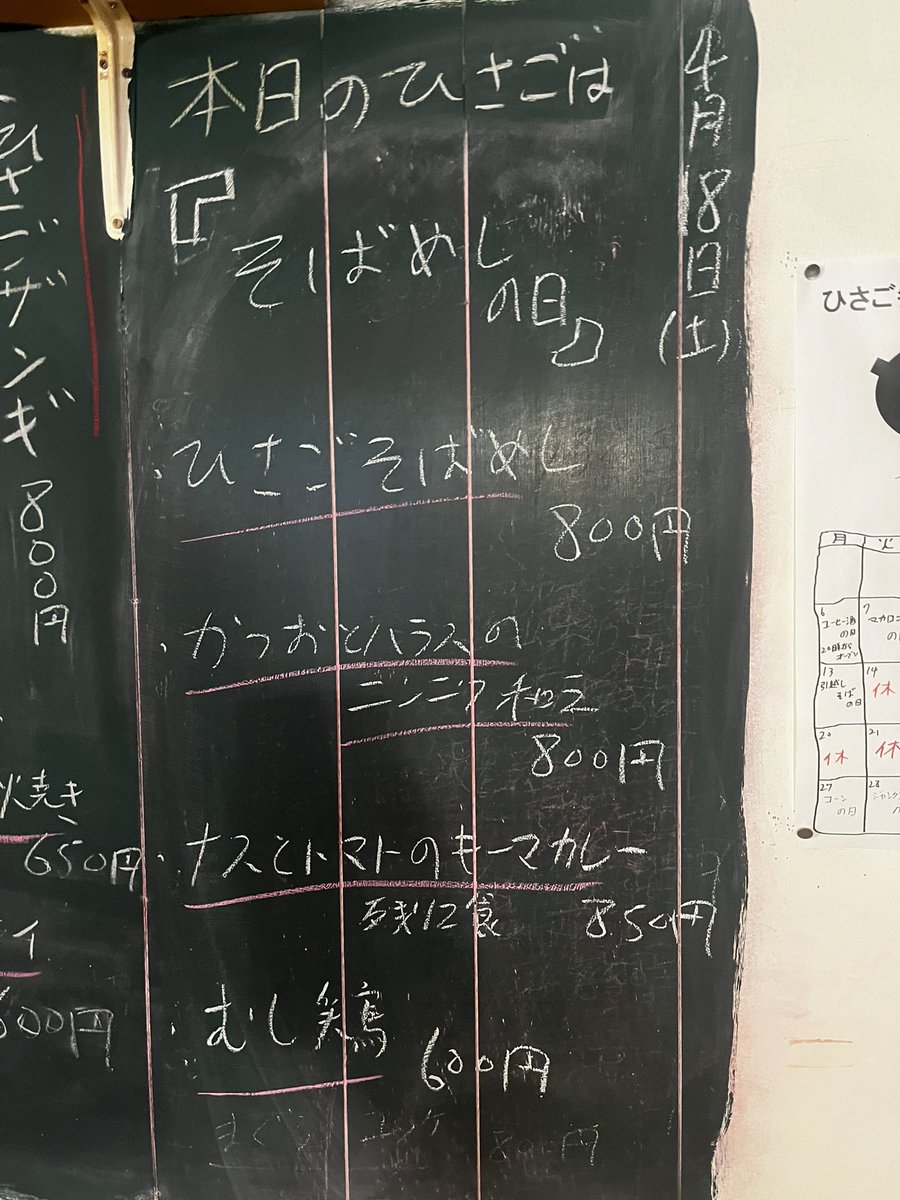 4月18日(土)
本日のひさごは
『そばめし
の日』
・ひさごそばめし
800円
・かつおとハラスの
ニンニク
800円
・ナスとトマトのキーマカレー
残12食 850円
・むし鶏
600円
800円
ひさごザンギ 800円
焼き
650円
イ
600円
ひさご
月 火
6 コーヒー酒の日 20時からオープン
7 マカロニの
13 引越しそばの日
14 休
20 休
21 休
27 コーンの日
28